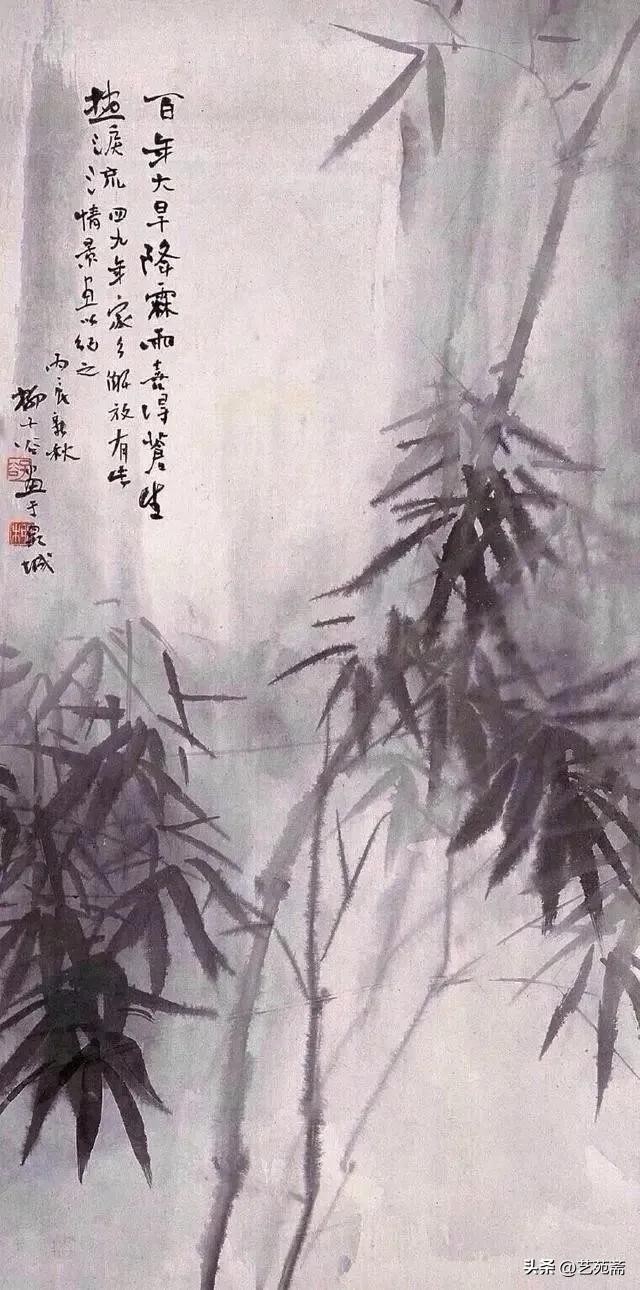 百年大旱降霖雨喜得苍生
热泪流四九年家乡解放有此
情景画以纪之
丙辰新秋
柳子谷画于泉城
头条 @艺苑斋